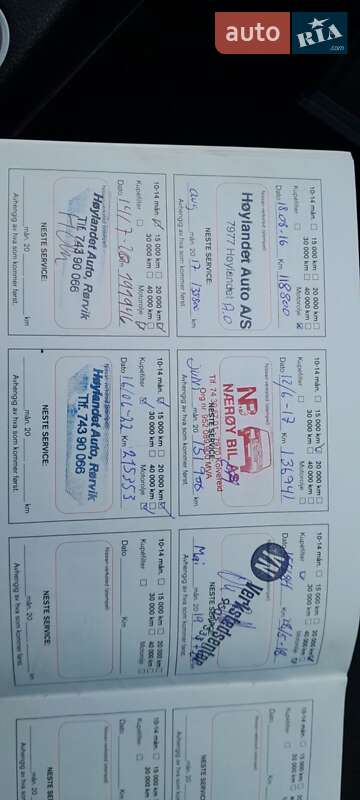 auto RIA.com
10-14 mån. 15 000 km 20 000 km
30 000 km 40 000 km
Kupefilter Motorolje
Dato 18.08.16 Km 118800
Nissan-verksted (stempel)
Høylandet Auto A/S
7977 Høylandet
NESTE SERVICE:
aug mån. 20 17 km
Avhengig av hva som kommer først.
10-14 mån. 15 000 km 20 000 km
30 000 km 40 000 km
Kupefilter Motorolje
Dato 12/6-17 Km 136941
NÆRØY BIL AS
NESTE SERVICE:
Juni mån. 20
Avhengig av hva som kommer først.
10-14 mån. 15 000 km 20 000 km
30 000 km 40 000 km
Kupefilter Motorolje
Dato
NESTE SERVICE:
Mai mån. 20 19
Avhengig av hva som kommer først.
10-14 mån. 15 000 km
30 000 km
Kupefilter
Dato
Nissan-verksted (stempel)
10-14 mån. 15 000 km 20 000 km
30 000 km 40 000 km
Kupefilter Motorolje
Dato Km 191946
Nissan-verksted (stempel)
Høylandet Auto, Rørvik
Tlf. 743 90 066
NESTE SERVICE:
mån. 20 km
Avhengig av hva som kommer først.
10-14 mån. 15 000 km 20 000 km
30 000 km 40 000 km
Kupefilter Motorolje
Dato 16/06-22 Km 215353
Nissan-verksted (stempel)
Høylandet Auto, Rørvik
Tlf. 743 90 066
NESTE SERVICE:
mån. 20 km
Avhengig av hva som kommer først.
10-14 mån. 15 000 km 20 000 km
30 000 km 40 000 km
Kupefilter Motorolje
Dato Km
Nissan-verksted (stempel)
NESTE SERVICE:
mån. 20 km
Avhengig av hva som kommer først.
10-14 mån. 15 000 km 20 000 km
30 000 km 40 000 km
Kupefilter Motorolje
Dato Km
Nissan-verksted (stempel)
NESTE SERVICE:
mån. 20
Avhengig av hva som kommer først.